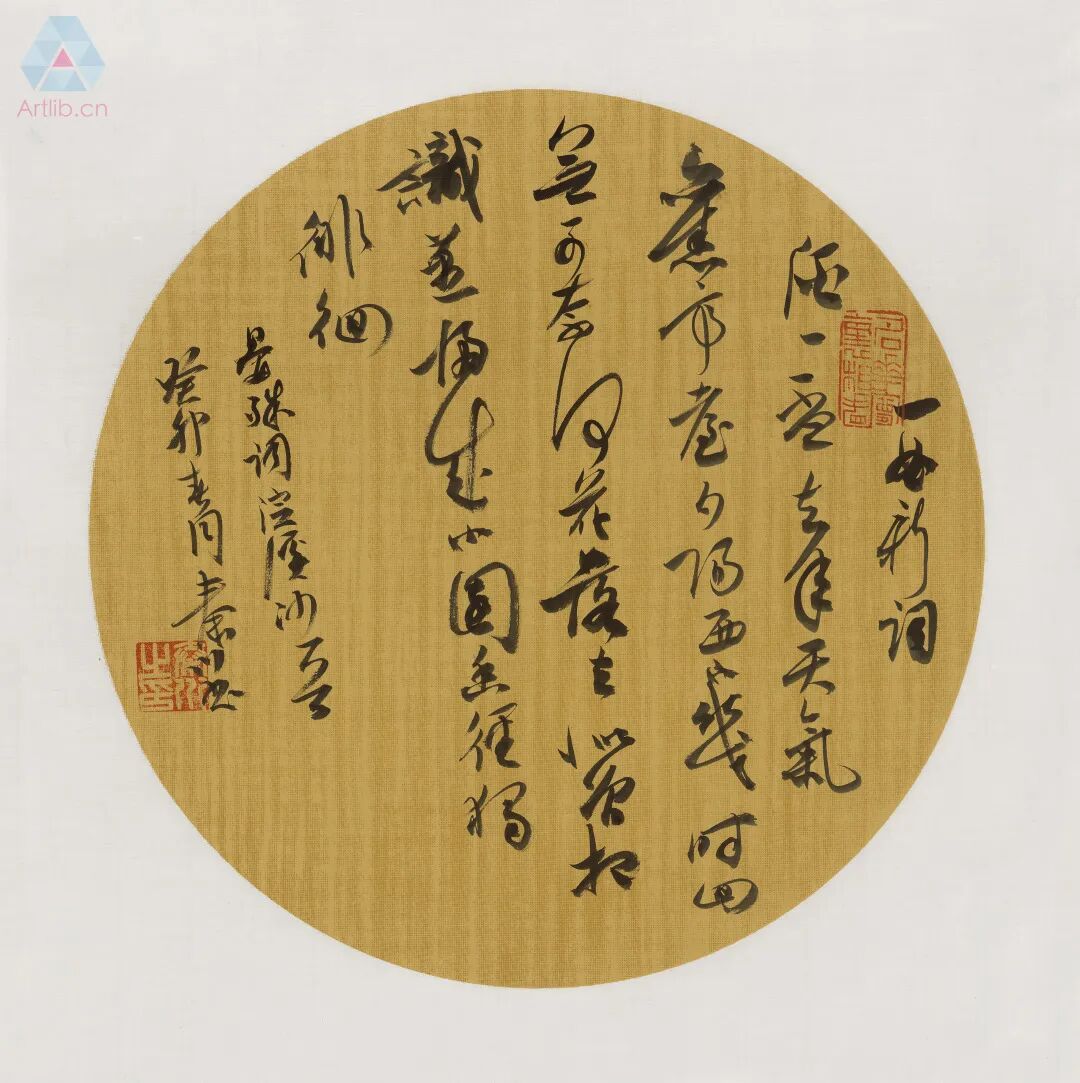 Artlib.cn
一曲新詞
酒一盃去年天氣
舊亭臺夕陽西下幾時回
無可奈何花落去似曾相
識燕歸來小園香徑獨
徘徊
晏殊詞浣溪沙一首
癸卯春月秦